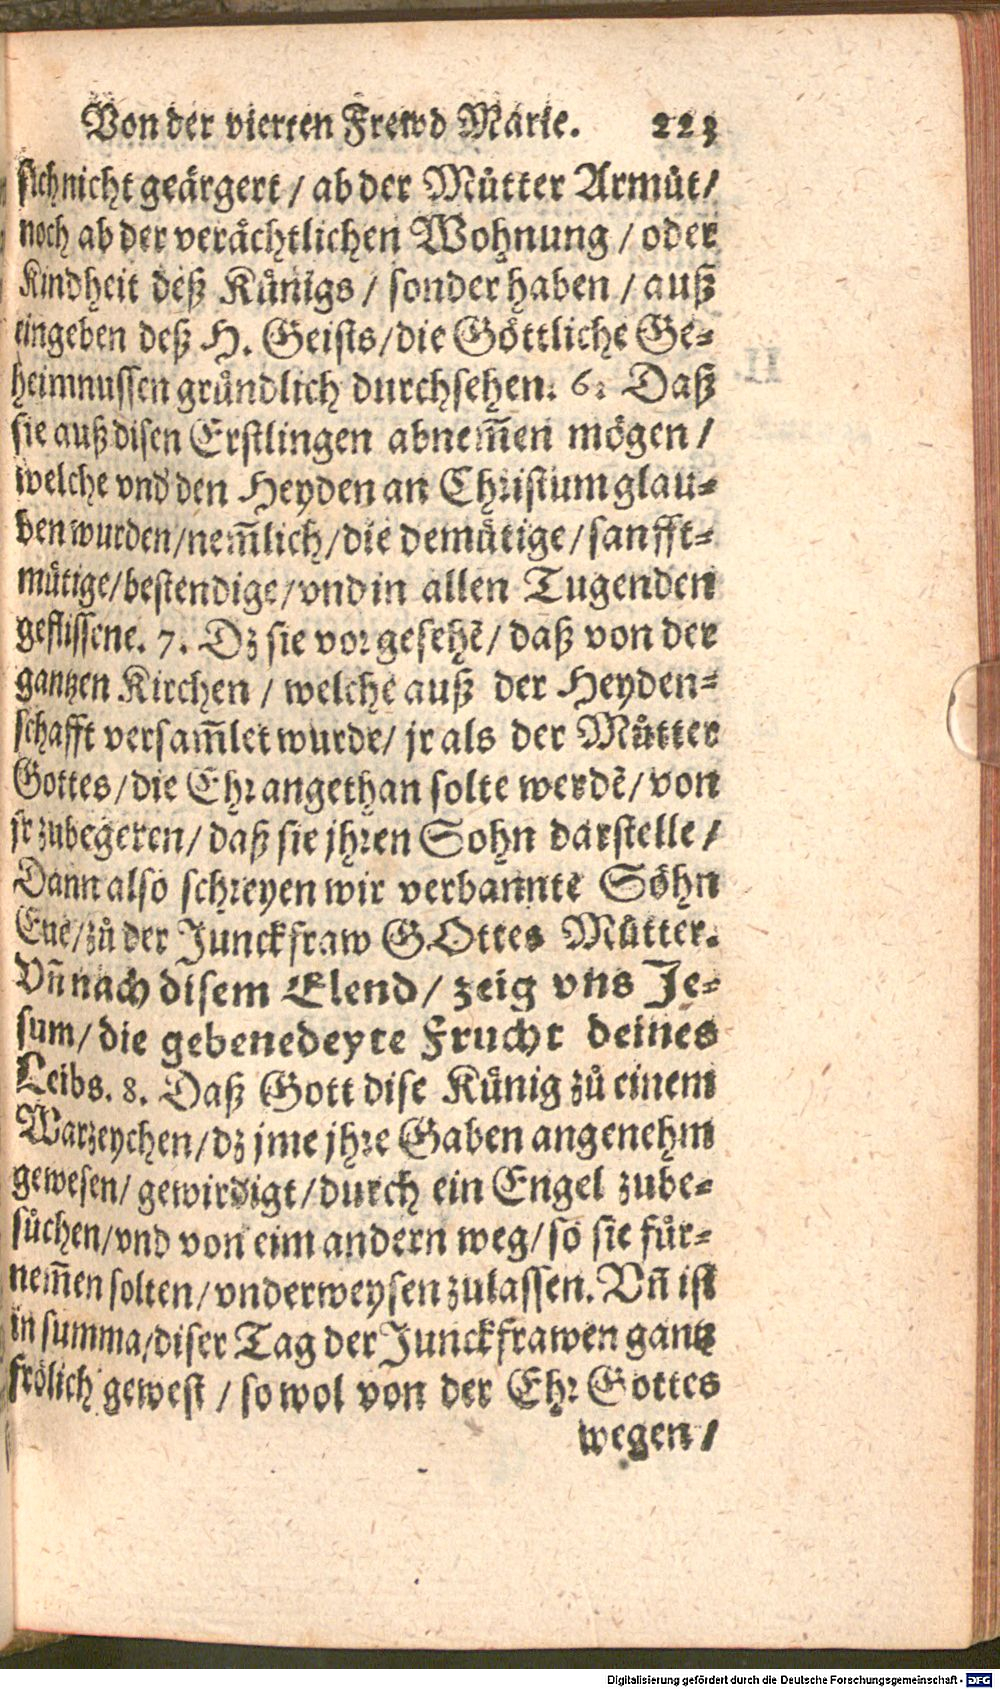 Von der vierten Frewd Marie. 223
sich nicht geärgert / ab der Můtter Armůt /
noch ab der verächtlichen Wohnung / oder
Kindheit deß Künigs / sonder haben / auß
eingeben deß H. Geists / die Göttliche Ge-
heimnussen gründlich durchsehen. 6. Daß
sie auß disen Erstlingen abnem̃en mögen /
welche vnd den Heyden an Christum glau-
ben wurden / nem̃lich / die demütige / sanfft-
mütige / bestendige / vnd in allen Tugenden
geflissene. 7. Dz sie vorgesehẽ / daß von der
gantzen Kirchen / welche auß der Heyden-
schafft versam̃let wurde / jr als der Můtter
Gottes / die Ehr angethan solte werdẽ / von
jr zubegeren / daß sie jhren Sohn darstelle /
Dann also schreyen wir verbannte Söhn
Eue / zů der Junckfraw GOttes Můtter.
Vñ nach disem Elend / zeig vns Je-
sum / die gebenedeyte Frucht deines
Leibs. 8. Daß Gott dise Künig zů einem
Warzeychen / dz jme jhre Gaben angenehm
gewesen / gewirdigt / durch ein Engel zube-
sůchen / vnd von eim andern weg / so sie für-
nem̃en solten / vnderweysen zulassen. Vñ ist
in summa / diser Tag der Junckfrawen gantz
frölich gewest / so wol von der Ehr Gottes
wegen /
Digitalisierung gefördert durch die Deutsche Forschungsgemeinschaft - DFG